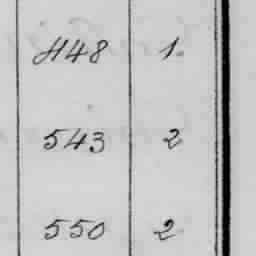 448 1
543 2
550 2